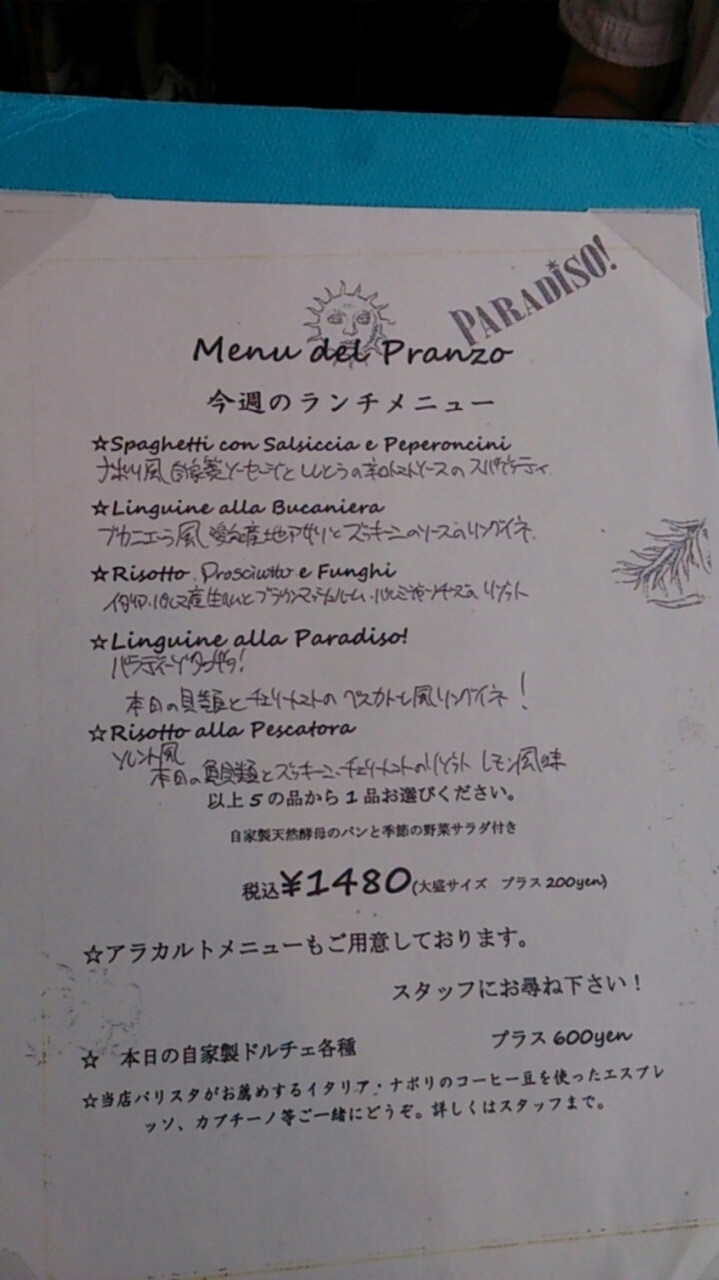 PARADISO!
Menu del Pranzo
今週のランチメニュー
☆Spaghetti con Salsiccia e Peperoncini
ナポリ風 自家製ソーセージとししとうの辛口トマトソースのスパゲッティ
☆Linguine alla Bucaniera
ブカニエーラ風 愛知産地アサリとズッキーニのソースのリングイネ
☆Risotto Prosciutto e Funghi
イタリア・パルマ産生ハムとブラウンマッシュルーム・パルミジャーノチーズのリゾット
☆Linguine alla Paradiso!
パラディーゾ
本日の貝類とチェリートマトのペスカトーレ風リングイネ!
☆Risotto alla Pescatora
ソレント風
本日の魚貝類とズッキーニ・チェリートマトのリゾット レモン風味
以上5の品から1品お選びください。
自家製天然酵母のパンと季節の野菜サラダ付き
税込¥1480(大盛サイズ プラス200yen)
☆アラカルトメニューもご用意しております。
スタッフにお尋ね下さい!
☆ 本日の自家製ドルチェ各種 プラス600yen
☆当店バリスタがお薦めするイタリア・ナポリのコーヒー豆を使ったエスプレ
ッソ、カプチーノ等ご一緒にどうぞ。詳しくはスタッフまで。